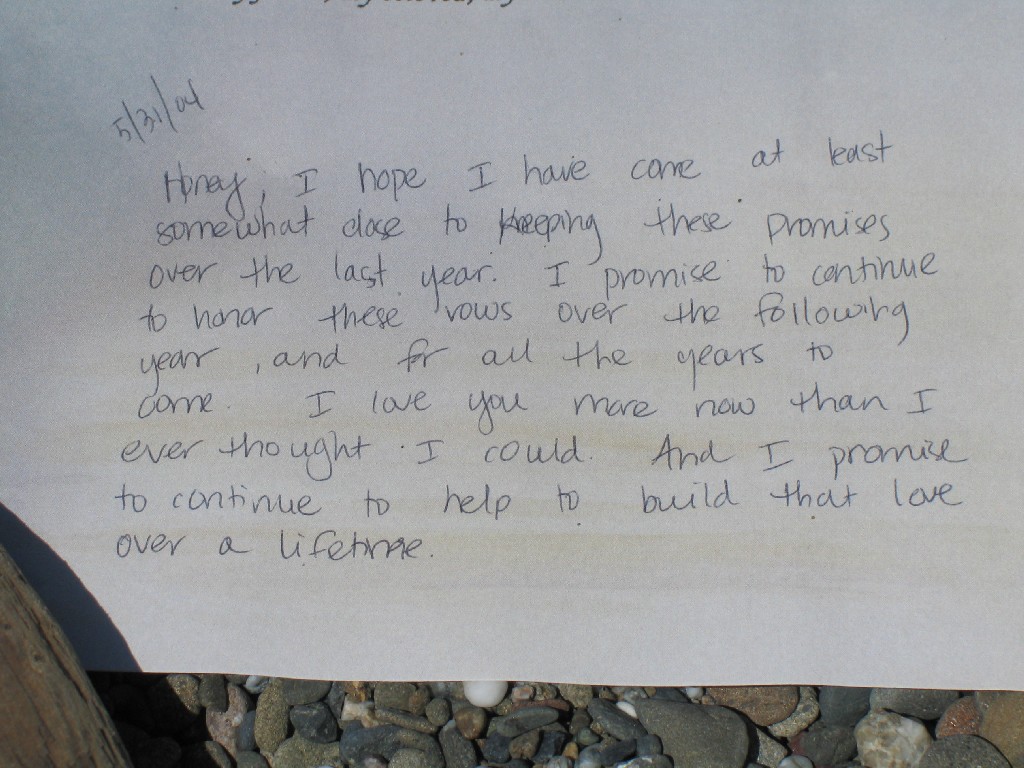 5/31/04
Honey, I hope I have come at least
somewhat close to keeping these promises
over the last year. I promise to continue
to honor these vows over the following
year, and for all the years to
come. I love you more now than I
ever thought I could. And I promise
to continue to help to build that love
over a lifetime.